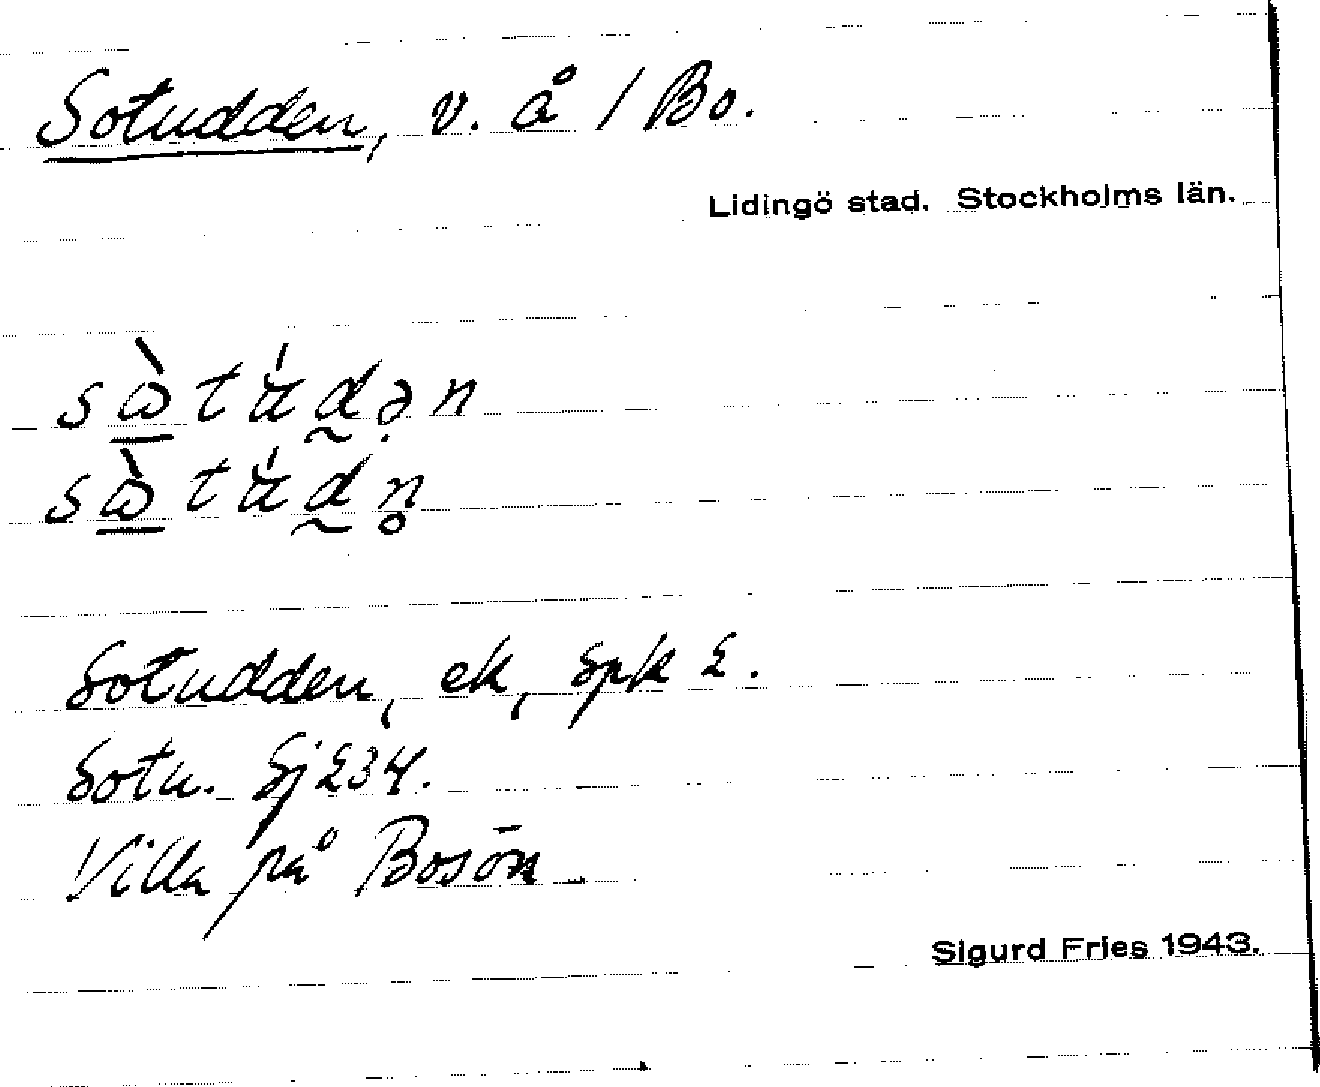 Sotudden, v. å / Bo.
Lidingö stad. Stockholms län.
Sotudden, ek, Spk 2.
Sotu. Sj 234.
Villa på Bosön
Sigurd Fries 1943.